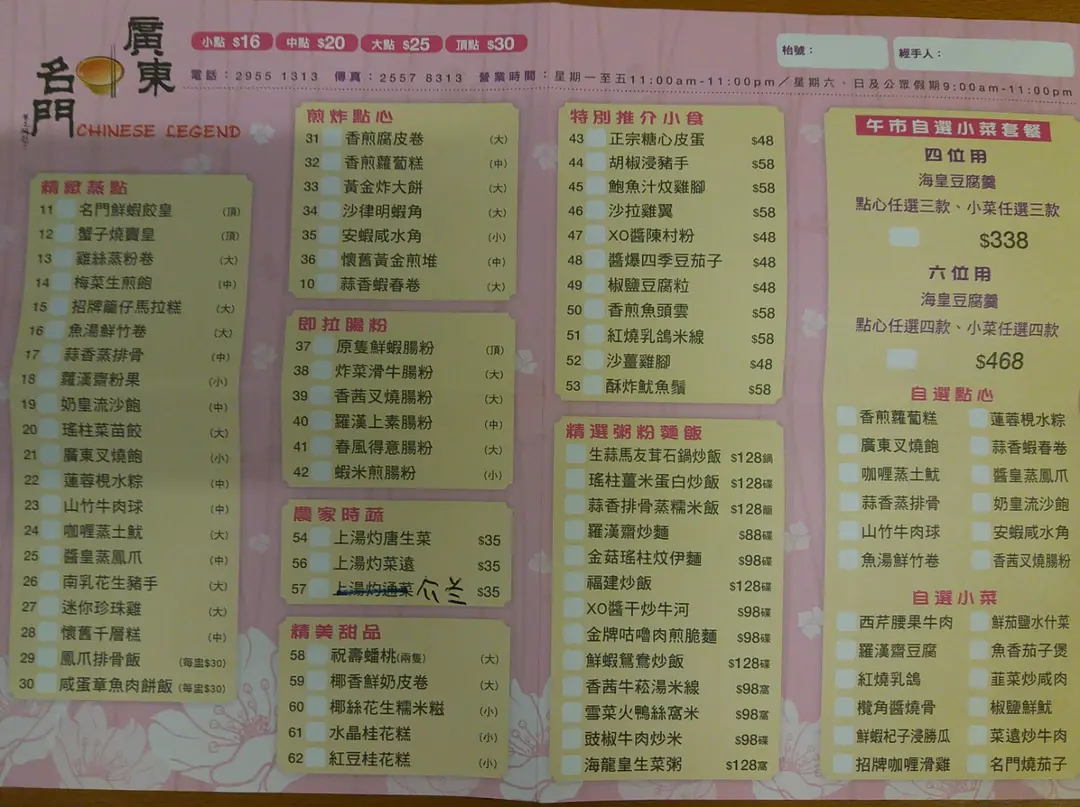 廣東名門
CHINESE LEGEND
小點 $16 中點 $20 大點 $25 頂點 $30
枱號：
經手人：
電話：2955 1313 傳真：2557 8313 營業時間：星期一至五11:00am-11:00pm／星期六、日及公眾假期9:00am-11:00pm
精緻蒸點
11 名門鮮蝦餃皇 (頂)
12 蟹子燒賣皇 (頂)
13 雞絲蒸粉卷 (大)
14 梅菜生煎飽 (中)
15 招牌籠仔馬拉糕 (大)
16 魚湯鮮竹卷 (大)
17 蒜香蒸排骨 (中)
18 羅漢齋粉果 (小)
19 奶皇流沙飽 (中)
20 瑤柱菜苗餃 (大)
21 廣東叉燒飽 (小)
22 蓮蓉梘水粽 (中)
23 山竹牛肉球 (中)
24 咖喱蒸土魷 (大)
25 醬皇蒸鳳爪 (中)
26 南乳花生豬手 (大)
27 迷你珍珠雞 (大)
28 懷舊千層糕 (中)
29 鳳爪排骨飯 (每盅$30)
30 咸蛋章魚肉餅飯 (每盅$30)
煎炸點心
31 香煎腐皮卷 (大)
32 香煎蘿蔔糕 (中)
33 黃金炸大餅 (大)
34 沙律明蝦角 (大)
35 安蝦咸水角 (小)
36 懷舊黃金煎堆 (中)
10 蒜香蝦春卷 (大)
即拉腸粉
37 原隻鮮蝦腸粉 (頂)
38 炸菜滑牛腸粉 (大)
39 香茜叉燒腸粉 (大)
40 羅漢上素腸粉 (中)
41 春風得意腸粉 (大)
42 蝦米煎腸粉 (中)
農家時蔬
54 上湯灼唐生菜 $35
56 上湯灼菜遠 $35
57 上湯灼通菜 介兰 $35
精美甜品
58 祝壽蟠桃(兩隻) (大)
59 椰香鮮奶皮卷 (大)
60 椰絲花生糯米糍 (小)
61 水晶桂花糕 (小)
62 紅豆桂花糕 (小)
特別推介小食
43 正宗糖心皮蛋 $48
44 胡椒浸豬手 $58
45 鮑魚汁炆雞腳 $58
46 沙拉雞翼 $58
47 XO醬陳村粉 $48
48 醬爆四季豆茄子 $48
49 椒鹽豆腐粒 $48
50 香煎魚頭雲 $58
51 紅燒乳鴿米線 $58
52 沙薑雞腳 $48
53 酥炸魷魚鬚 $58
精選粥粉麵飯
生蒜馬友茸石鍋炒飯 $128鍋
瑤柱薑米蛋白炒飯 $128碟
蒜香排骨蒸糯米飯 $128籠
羅漢齋炒麵 $88碟
金菇瑤柱炆伊麵 $98碟
福建炒飯 $128碟
XO醬干炒牛河 $98碟
金牌咕嚕肉煎脆麵 $98碟
鮮蝦鴛鴦炒飯 $128碟
香茜牛菘湯米線 $98窩
雪菜火鴨絲窩米 $98窩
豉椒牛肉炒米 $98碟
海龍皇生菜粥 $128窩
午市自選小菜套餐
四位用
海皇豆腐羹
點心任選三款、小菜任選三款
$338
六位用
海皇豆腐羹
點心任選四款、小菜任選四款
$468
自選點心
香煎蘿蔔糕 蓮蓉梘水粽
廣東叉燒飽 蒜香蝦春卷
咖喱蒸土魷 醬皇蒸鳳爪
蒜香蒸排骨 奶皇流沙飽
山竹牛肉球 安蝦咸水角
魚湯鮮竹卷 香茜叉燒腸粉
自選小菜
西芹腰果牛肉 鮮茄鹽水什菜
羅漢齋豆腐 魚香茄子煲
紅燒乳鴿 韮菜炒咸肉
欖角醬燒骨 椒鹽鮮魷
鮮蝦杞子浸勝瓜 菜遠炒牛肉
招牌咖喱滑雞 名門燒茄子